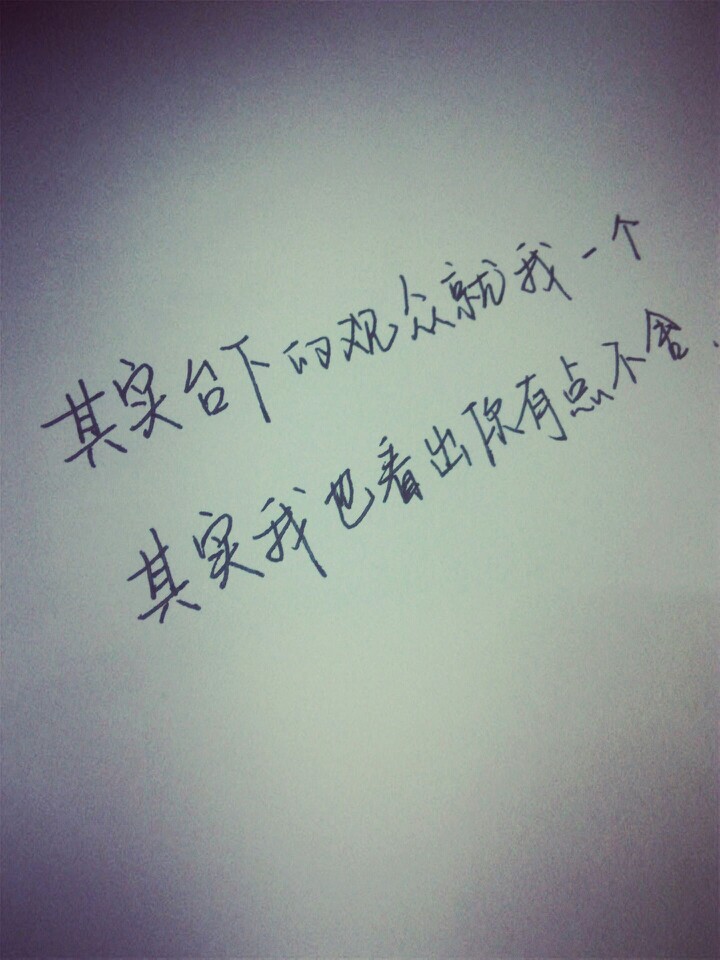 其实台下的观众就我一个
其实我也看出你有点不舍.